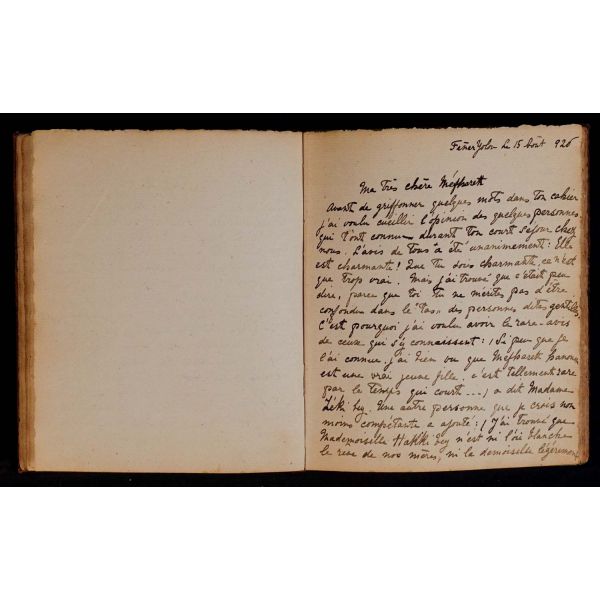 Féner Yolou le 15 Août 926
Ma très chère Meffharett
Avant de griffonner quelques mots dans ton cahier
j'ai voulu cueillir l'opinion des quelques personnes
qui t'ont connue durant ton court séjour chez
nous. L'avis de tous a été unanimement : Elle
est charmante ! Que tu sois charmante, ce n'est
que trop vrai. Mais j'ai trouvé que c'était peu
dire, parce que toi tu ne mérites pas d'être
confondue dans le "tas" des personnes dites gentilles,
C'est pourquoi j'ai voulu avoir le rare-avis
de ceux qui s'y connaissent : / Si peu que je
l'ai connue, j'ai bien vu que Meffharett hanoum
est une vrai jeune fille, c'est tellement rare
par le temps qui court ... / a dit Madame
Zéki bey. Une autre personne que je crois non
moins compétante a ajouté : / J'ai trouvé que
Mademoiselle Hakki bey n'est ni l'oie blanche
le rêve de nos mères, ni la demoiselle légèrement